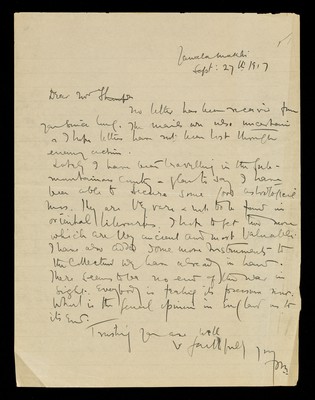 Sept: 27th 1917
Dear Mr Thompson
No letter has been received from
you since long. The mails are also uncertain
& I hope letters have not been lost through
enemy action.
Lately I have been travelling in the
mountainous country & glad to say I have
been able to secure some good astrological
mss. They are very rare & not to be found in
oriental libraries. I hope to get two more
which are very ancient and most valuable.
I have also added some more Instruments to
the collection we have already in hand.
There seems to be no end of the war in
sight. Everybody is fearing its process now.
What is the general opinion in England as to
its end.
Trusting you are well
yours faithfully